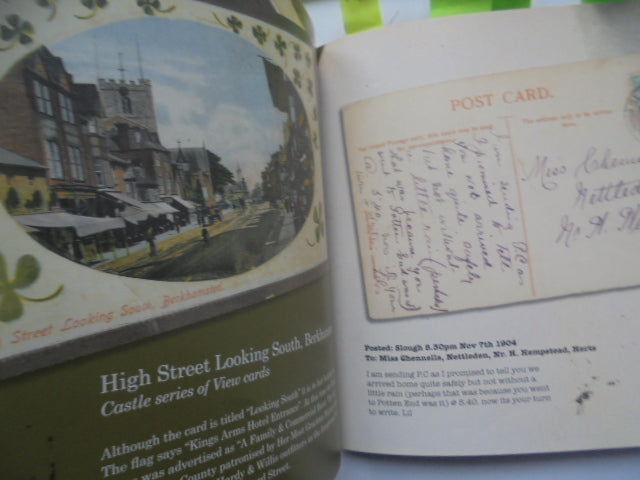 Street Looking South, Berkhamsted.
High Street Looking South, Berkhams
Castle series of View cards
Although the card is titled "Looking South" it is in fact looking
The flag says "Kings Arms Hotel Entrance".
was advertised as "A Family &
County patronised by Her Most Gracious
Hardy & Willis outfitters in the
Street.
POST CARD.
The address only to be written
I am sending P.C as
I promised to tell
you we arrived
home quite safely
but not without
a little rain (perhaps
that was because you
went to Potten End
@ 5.40. now its your
Miss Chennells
Nettled
Nr H. He
Posted: Slough 8.30pm Nov 7th 1904
To: Miss Chennells, Nettleden, Nr. H. Hempstead, Herts
I am sending P.C as I promised to tell you we
arrived home quite safely but not without a
little rain (perhaps that was because you went
to Potten End was it) @ 5.40. now its your turn
to write. Lil